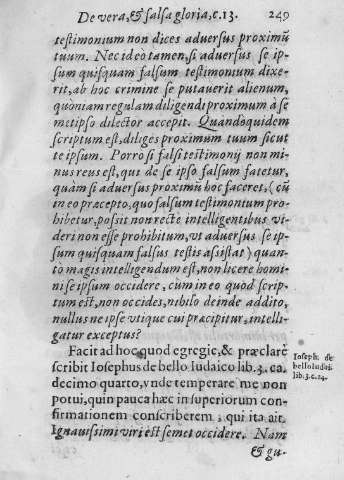 De vera, & falsa gloria, c.13. 249
testimonium non dices adversus proximũ
tuum. Nec ideo tamen, si adversus se ip-
sum quisquam falsum testimonium dixe-
rit, ab hoc crimine se putaverit alienum,
quoniam regulam diligendi proximum à se
metipso dilector accepit. Quandoquidem
scriptum est, diliges proximum tuum sicut
te ipsum. Porro si falsi testimonij non mi-
nus reus est, qui de se ipso falsum fatetur,
quàm si adversus proximũ hoc faceret, (cũ
in eo præcepto, quo falsum testimonium pro-
hibetur, possit non rectè intelligentibus vi-
deri non esse prohibitum, vt adversus se ip-
sum quisquam falsus testis assistat) quan-
to magis intelligendum est, non licere homi-
ni se ipsum occidere, cum in eo quod scrip-
tum est, non occides, nihilo deinde addito,
nullus ne ipse vtique cui præcipitur, intelli-
gatur exceptus?
Facit ad hoc, quod egregiè, & præclarè
scribit Iosephus de bello Iudaico lib. 3. ca.
decimo quarto, vnde temperare me non
potui, quin pauca hæc in superiorum con-
firmationem conscriberem, qui ita ait.
Ignavissimi viri est semet occidere. Nam
& qu.
Ioseph. de
bello Iudai.
lib. 3. c. 14.